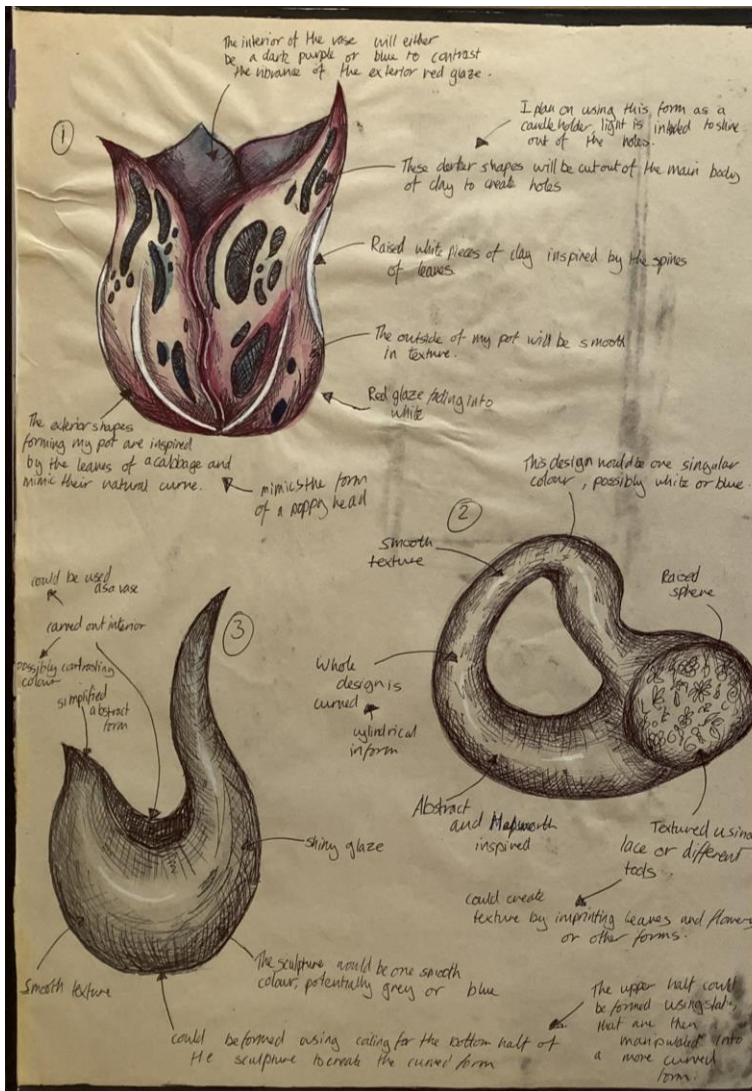 The interior of the vase will either
be a dark purple or blue to contrast
the vibrance of the exterior red glaze.
1
I plan on using this form as a
candle holder, light is intended to shine
out of the holes.
These darker shapes will be cut out of the main body
of clay to create holes
Raised white pieces of clay inspired by the spines
of leaves
The outside of my pot will be smooth
in texture.
Red glaze fading into
white
The exterior shapes
forming my pot are inspired
by the leaves of a cabbage and
mimic their natural curve.
mimics the form
of a poppy head
This design would be one singular
colour, possibly white or blue.
2
smooth
texture
Raised
sphere
Whole
design is
curved
cylindrical
in form
Abstract
and Hepworth
inspired
Textured using
lace or different
tools.
could create
texture by imprinting leaves and flowers
or other forms.
could be used
as a vase
carved out interior
possibly contrasting
colour
simplified
abstract
form
3
shiny glaze
Smooth texture
The sculpture would be one smooth
colour, potentially grey or blue
could be formed using coiling for the bottom half of
the sculpture to create the curved form
The upper half could
be formed using slabs,
that are then
manipulated into
a more curved
form.